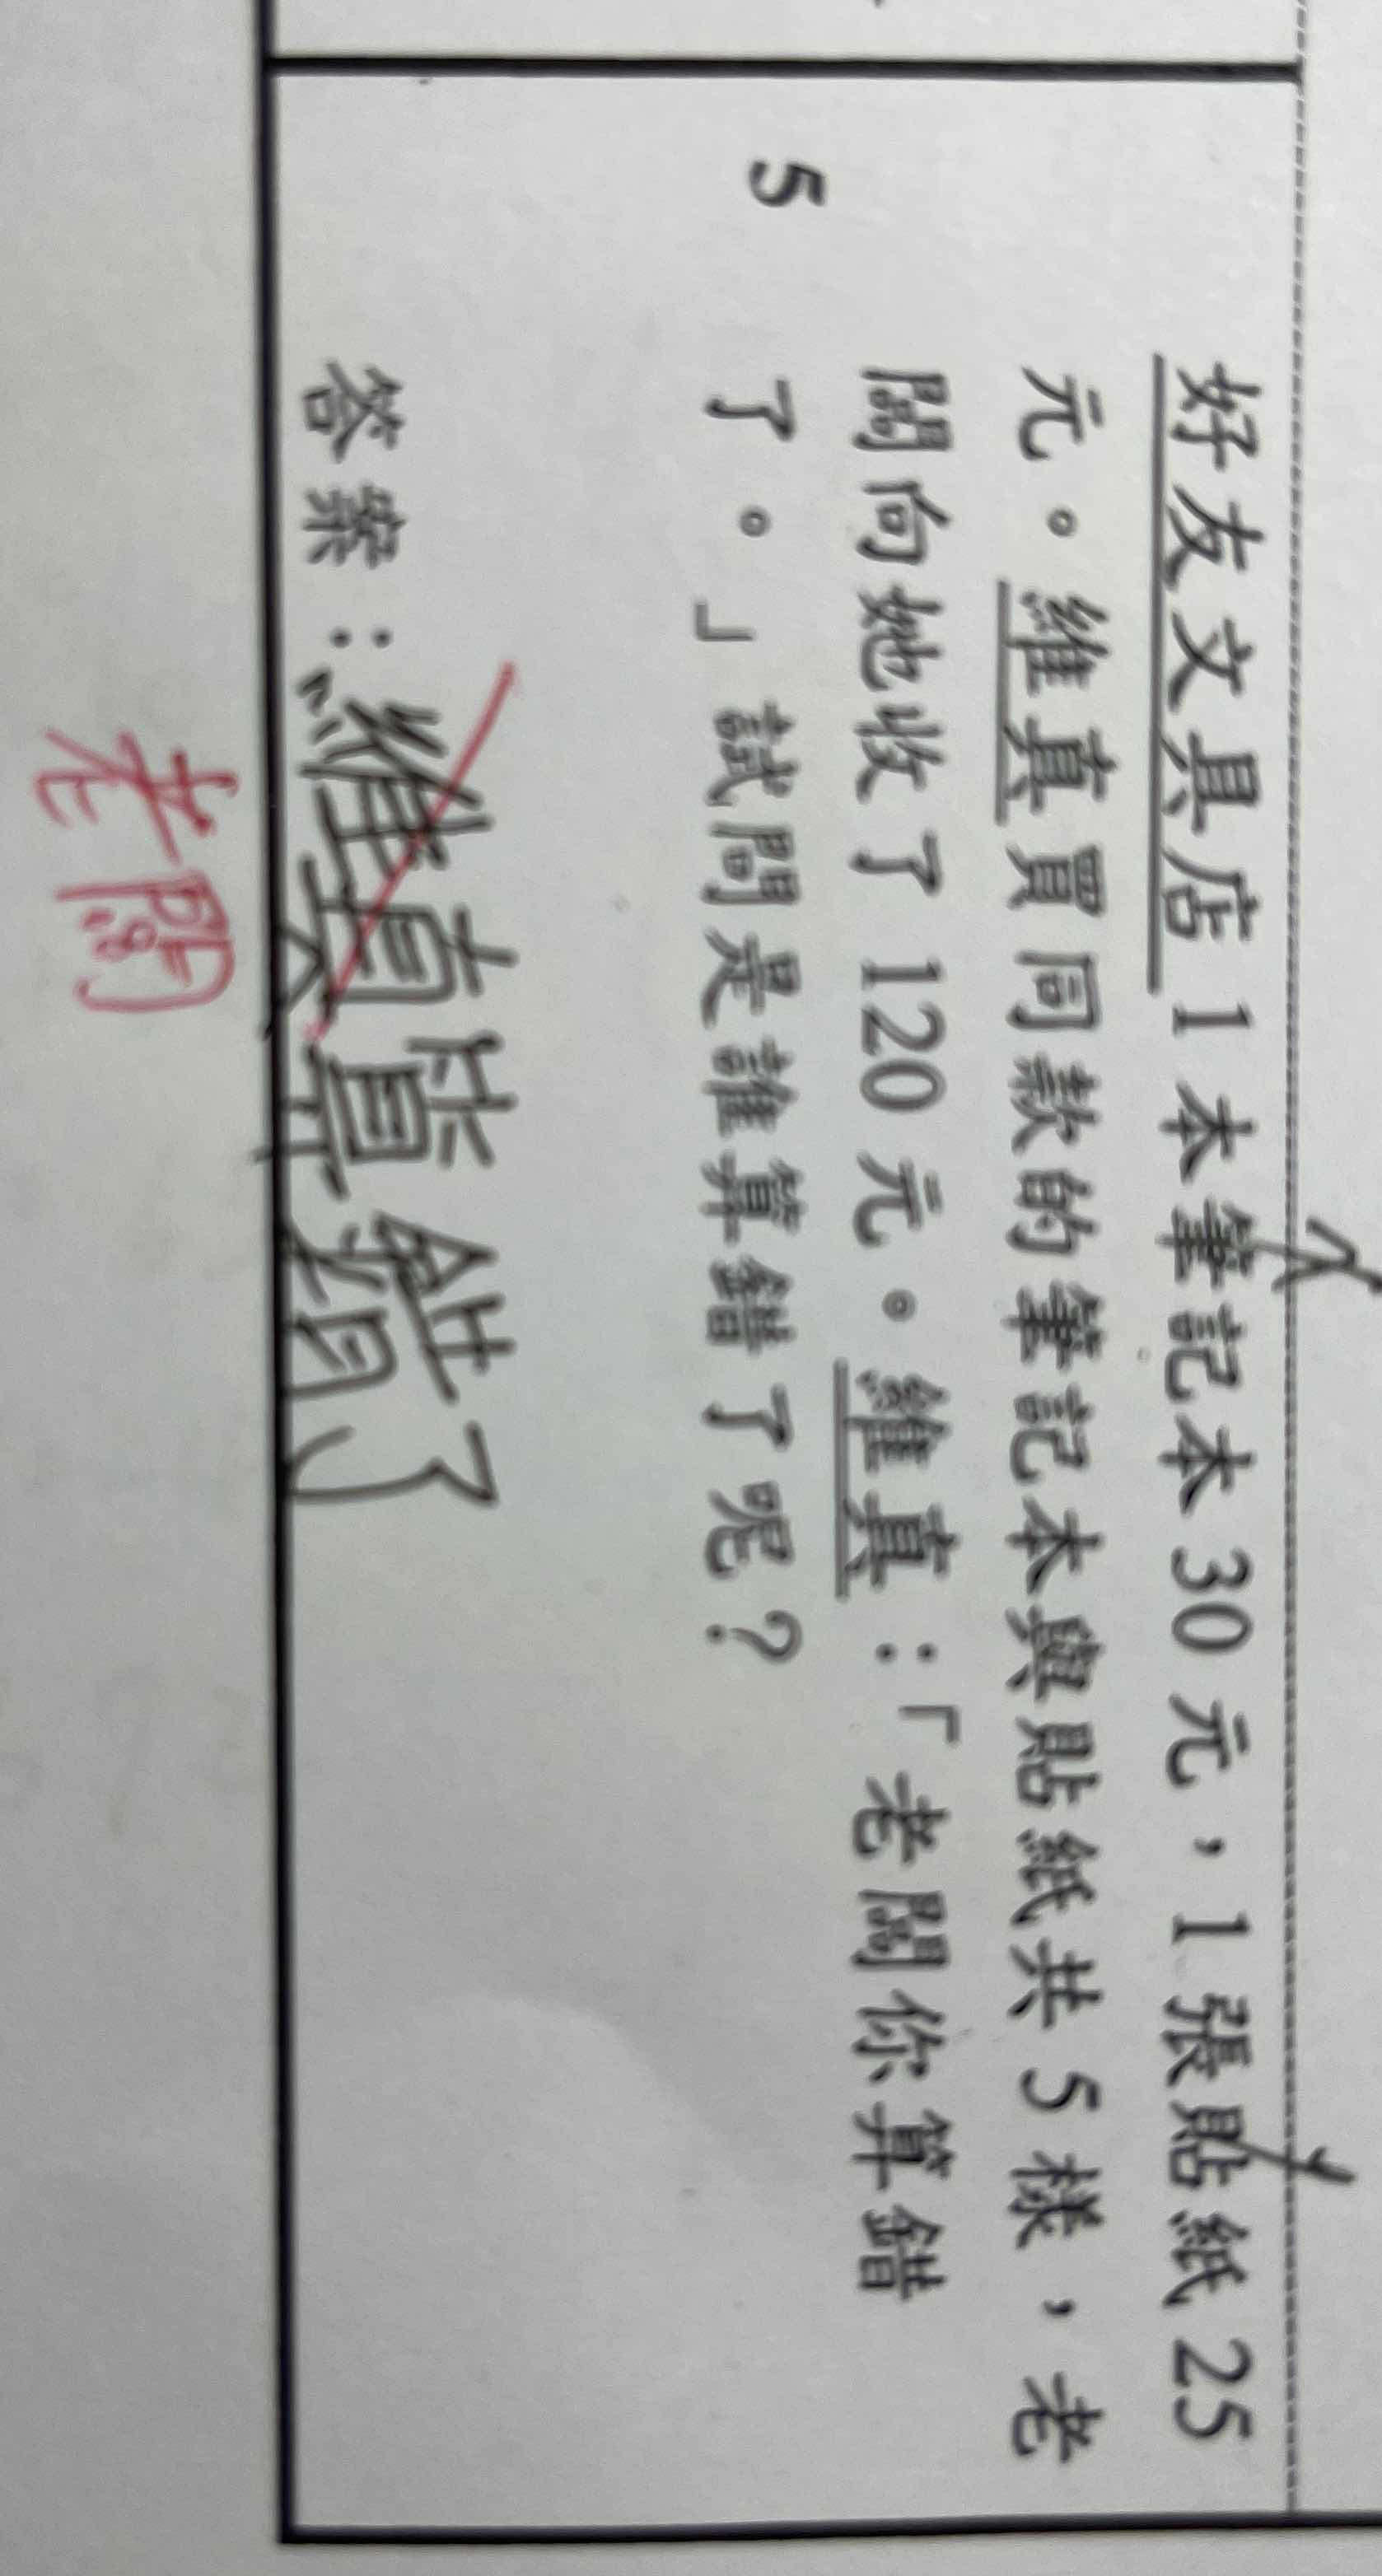 好友文具店1本筆記本30元，1張貼紙25
元。維真買同款的筆記本與貼紙共5樣，老
闆向她收了120元。維真：「老闆你算錯
5 了。」試問是誰算錯了呢？
答案：維真算錯了
老闆
x
y